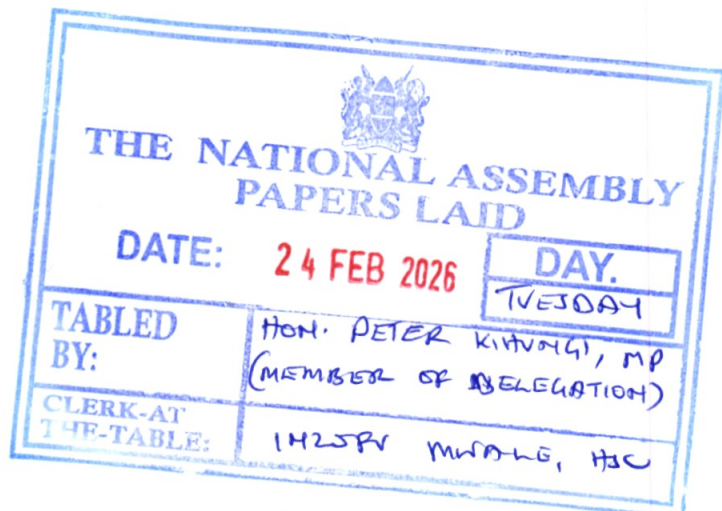 THE NATIONAL ASSEMBLY
PAPERS LAID
DATE: 24 FEB 2026
DAY.
TUESDAY
TABLED BY:
HON. PETER KIHUNGI, MP
(MEMBER OF DELEGATION)
CLERK-AT THE-TABLE:
MWALE,